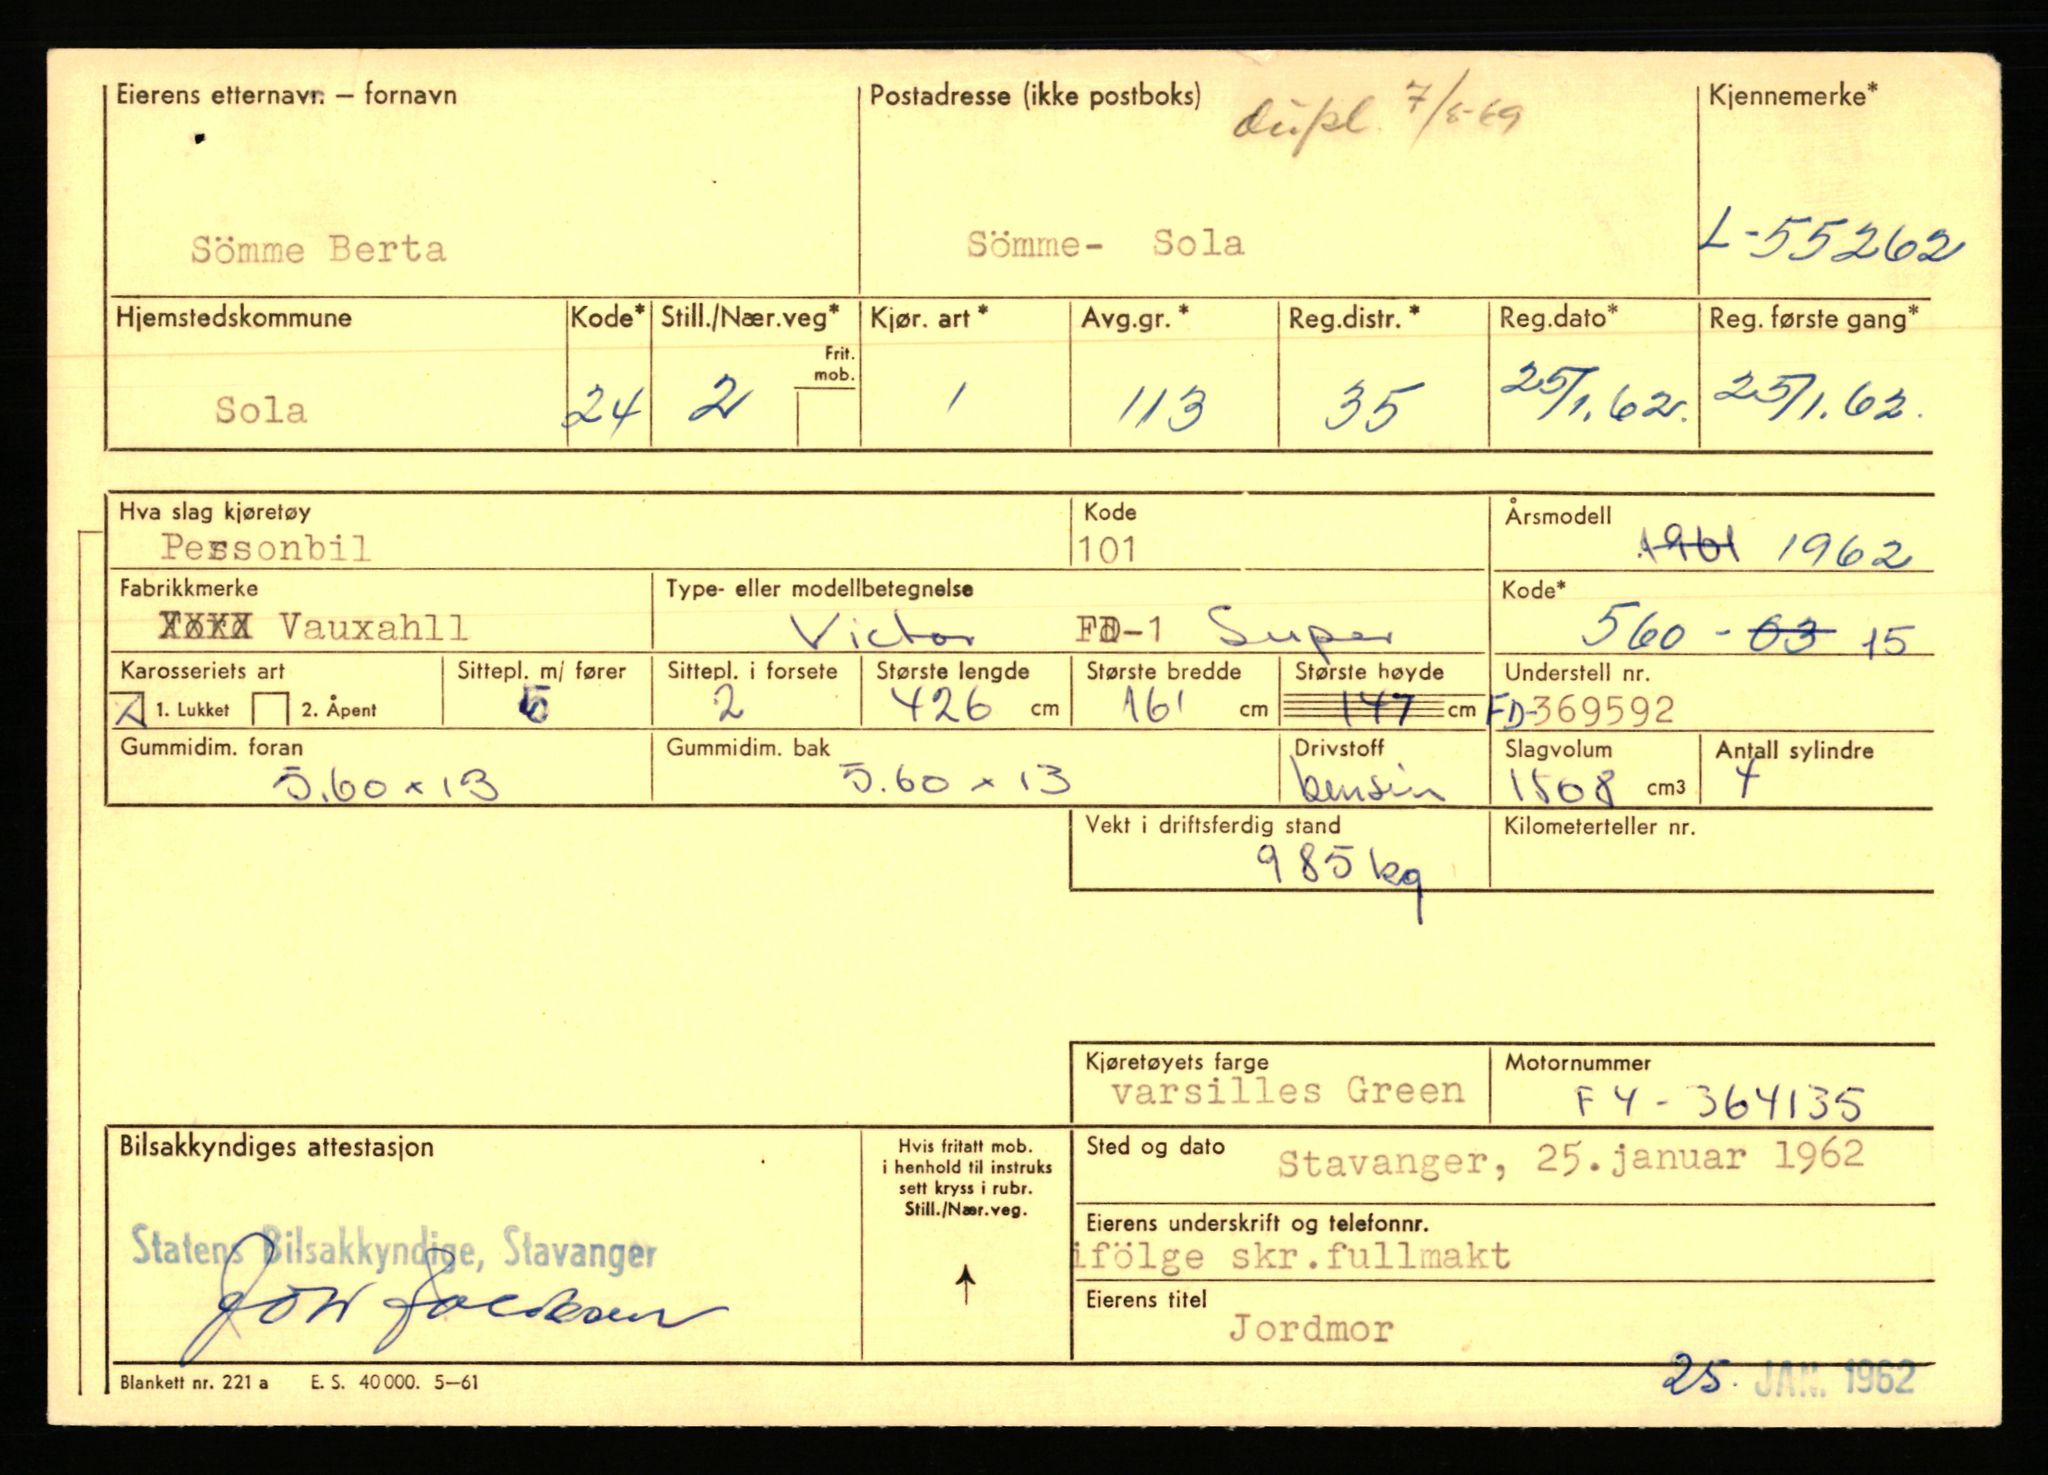 Eierens etternavn. – fornavn
Postadresse (ikke postboks)
dupl. 7/8-69
Kjennemerke*
Sömme Berta
Sömme- Sola
L-55262
Hjemstedskommune
Kode*
Still./Nær.veg*
Frit. mob.
Kjør. art*
Avg.gr.*
Reg.distr.*
Reg.dato*
Reg. første gang*
Sola
24
2
1
113
35
25/1.62.
25/1.62.
Hva slag kjøretøy
Kode
Årsmodell
Personbil
101
1961 1962
Fabrikkmerke
Type- eller modellbetegnelse
Kode*
Vauxahll
Victor FD-1 Super
560 - 03 15
Karosseriets art
Sittepl. m/ fører
Sittepl. i forsete
Største lengde
Største bredde
Største høyde
Understell nr.
1. Lukket
2. Åpent
5
2
426 cm
161 cm
147 cm
FD-369592
Gummidim. foran
Gummidim. bak
Drivstoff
Slagvolum
Antall sylindre
5.60 x 13
5.60 x 13
bensin
1508 cm3
4
Vekt i driftsferdig stand
Kilometerteller nr.
985 kg
Kjøretøyets farge
Motornummer
varsilles Green
F4 - 364135
Bilsakkyndiges attestasjon
Hvis fritatt mob.
i henhold til instruks
sett kryss i rubr.
Still./Nær.veg.
Sted og dato
Stavanger, 25.januar 1962
Eierens underskrift og telefonnr.
ifölge skr.fullmakt
Statens Bilsakkyndige, Stavanger
Eierens titel
Jordmor
Blankett nr. 221 a E. S. 40 000. 5–61
25. JAN. 1962